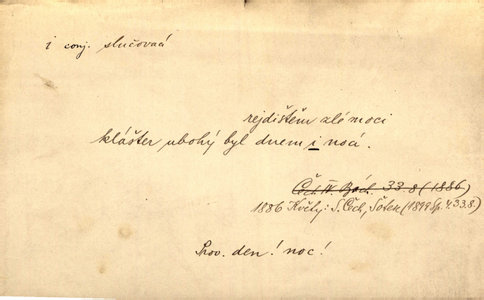 i conj. slučovací
rejdištěm zlé moci
klášter ubohý byl dnem i nocí.
Čech IV. 33 8 (1886)
1886 Květy: S. Čech, Šotek (1899 Sp. 4, 33.8.)
Srov. den! noc!